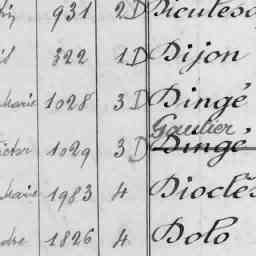 931 2 D Diculesc
322 1 D Dijon
Marie 1028 3 D Dingé
Gautier
1029 3 D Dingé
Marie 1983 4 Dioclès
dre 1826 4 Dolo